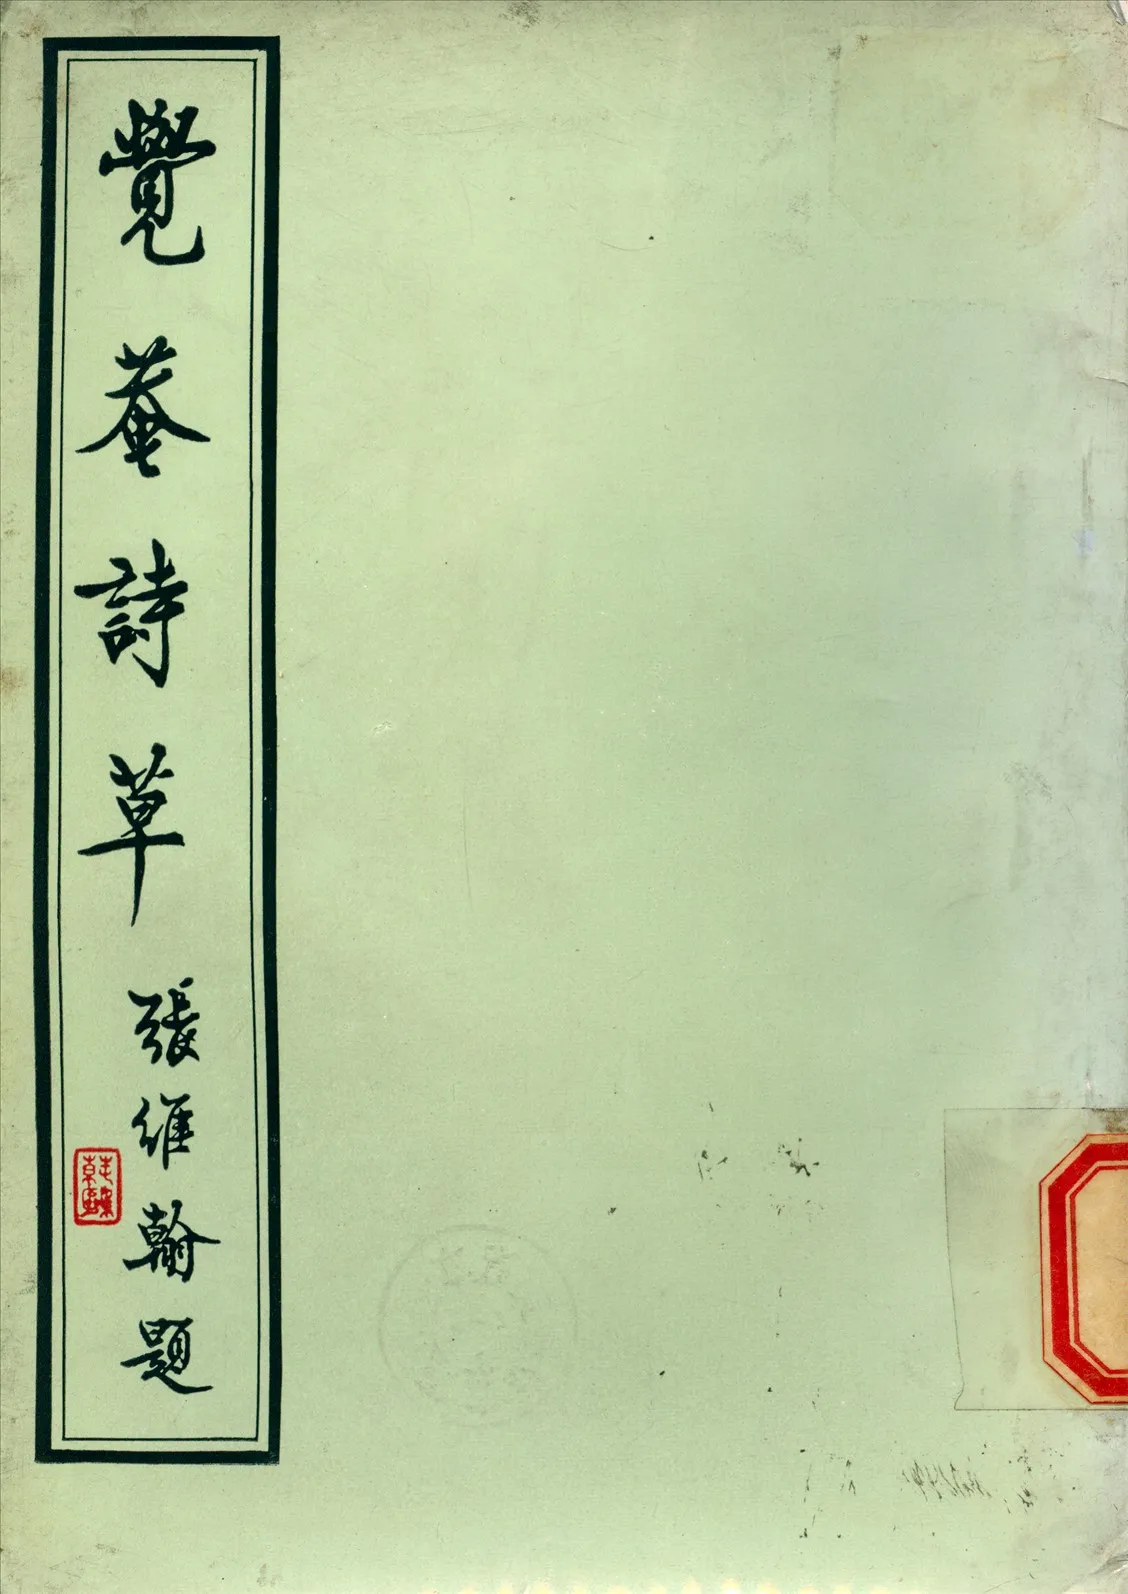 覺菴詩草
張維翰題